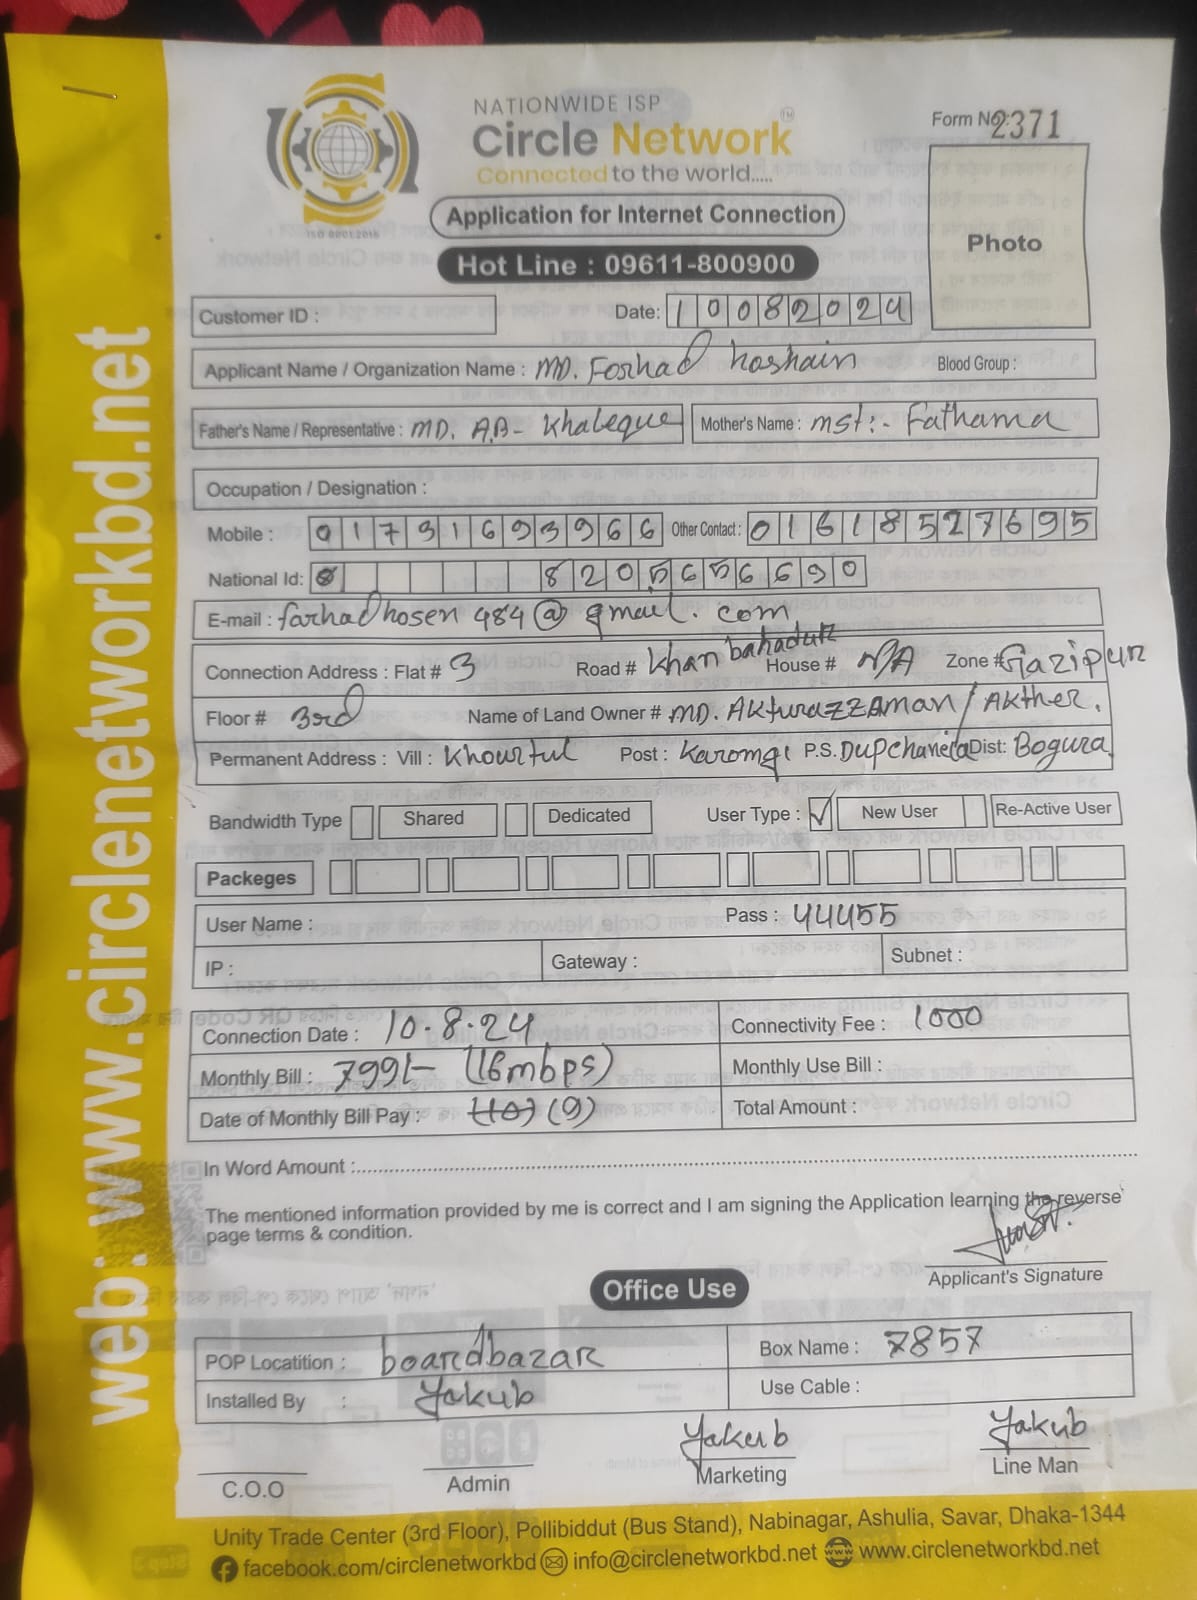 NATIONWIDE ISP
Circle Network™
Connected to the world.....
ISO 9001:2015
Form No: 2371
Application for Internet Connection
Photo
Hot Line : 09611-800900
Customer ID :
Date: 10082024
Applicant Name / Organization Name : MD. Forhad hoshain Blood Group :
Father's Name / Representative : MD. AB- Khaleque Mother's Name : mst:- Fathama
Occupation / Designation :
Mobile : 01731693966 Other Contact : 01618527695
National Id: 8205656690
E-mail : farhadhosen484@gmail.com
Connection Address : Flat # 3 Road # Khan bahadur House # N/A Zone # Gazipur
Floor # 3rd Name of Land Owner # MD. AKturazzaman / AKther.
Permanent Address : Vill : Khourtul Post : Karomgi P.S. Dupchancia Dist: Bogura
Bandwidth Type Shared Dedicated User Type : ✓ New User Re-Active User
Packeges
User Name : Pass : 44455
IP : Gateway : Subnet :
Connection Date : 10.8.24 Connectivity Fee : 1000
Monthly Bill : 799/- (16mbps) Monthly Use Bill :
Date of Monthly Bill Pay : (9) Total Amount :
In Word Amount :
The mentioned information provided by me is correct and I am signing the Application learning the reverse
page terms & condition.
Applicant's Signature
Office Use
POP Locatition : boardbazar Box Name : 7857
Installed By : Yakub Use Cable :
Yakub Yakub
C.O.O Admin Marketing Line Man
Unity Trade Center (3rd Floor), Pollibiddut (Bus Stand), Nabinagar, Ashulia, Savar, Dhaka-1344
facebook.com/circlenetworkbd info@circlenetworkbd.net www.circlenetworkbd.net
web: www.circlenetworkbd.net